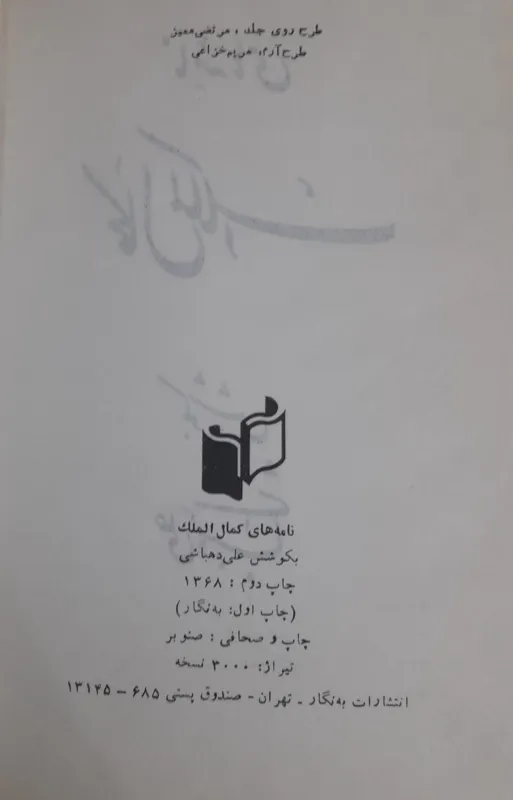 طرح روی جلد ، مرتضی ممیز
طرح آرم، مریم خزاعی
نامه‌های کمال‌الملک
بکوشش علی‌دهباشی
چاپ دوم : ۱۳۶۸
(چاپ اول: به‌نگار)
چاپ و صحافی : صنوبر
تیراژ: ۳۰۰۰ نسخه
انتشارات به‌نگار ـ تهران - صندوق پستی ۶۸۵ – ۱۳۱۴۵